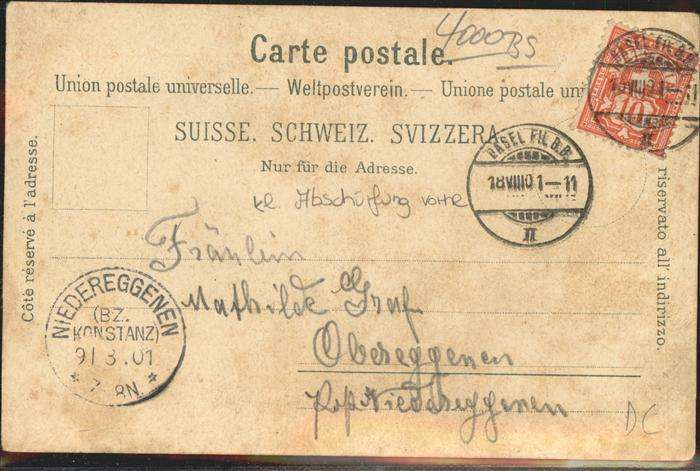 4000 BS
Carte postale.
Union postale universelle. — Weltpostverein. — Unione postale uni
SUISSE. SCHWEIZ. SVIZZERA
Nur für die Adresse.
Côté réservé à l'adresse.
riservato all' indirizzo.
BASEL FIL. B.B.
18 VIII 01-11
II
BASEL FIL. B.B.
18 VIII 01-11
II
10
Abschürfung vorne
Fräulein
Mathilde Graf
Obereggenen
Niedereggenen
NIEDEREGGENEN
(BZ.
KONSTANZ)
9/ 3. 01
8N.
DC